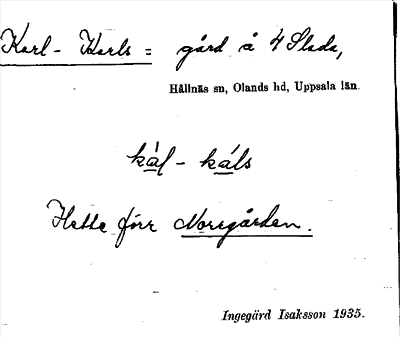 Karl-Karls = gård å 4 Slada,
Hållnäs sn, Olands hd, Uppsala län.
kál - káls
Hette förr Norrgården.
Ingegärd Isaksson 1935.